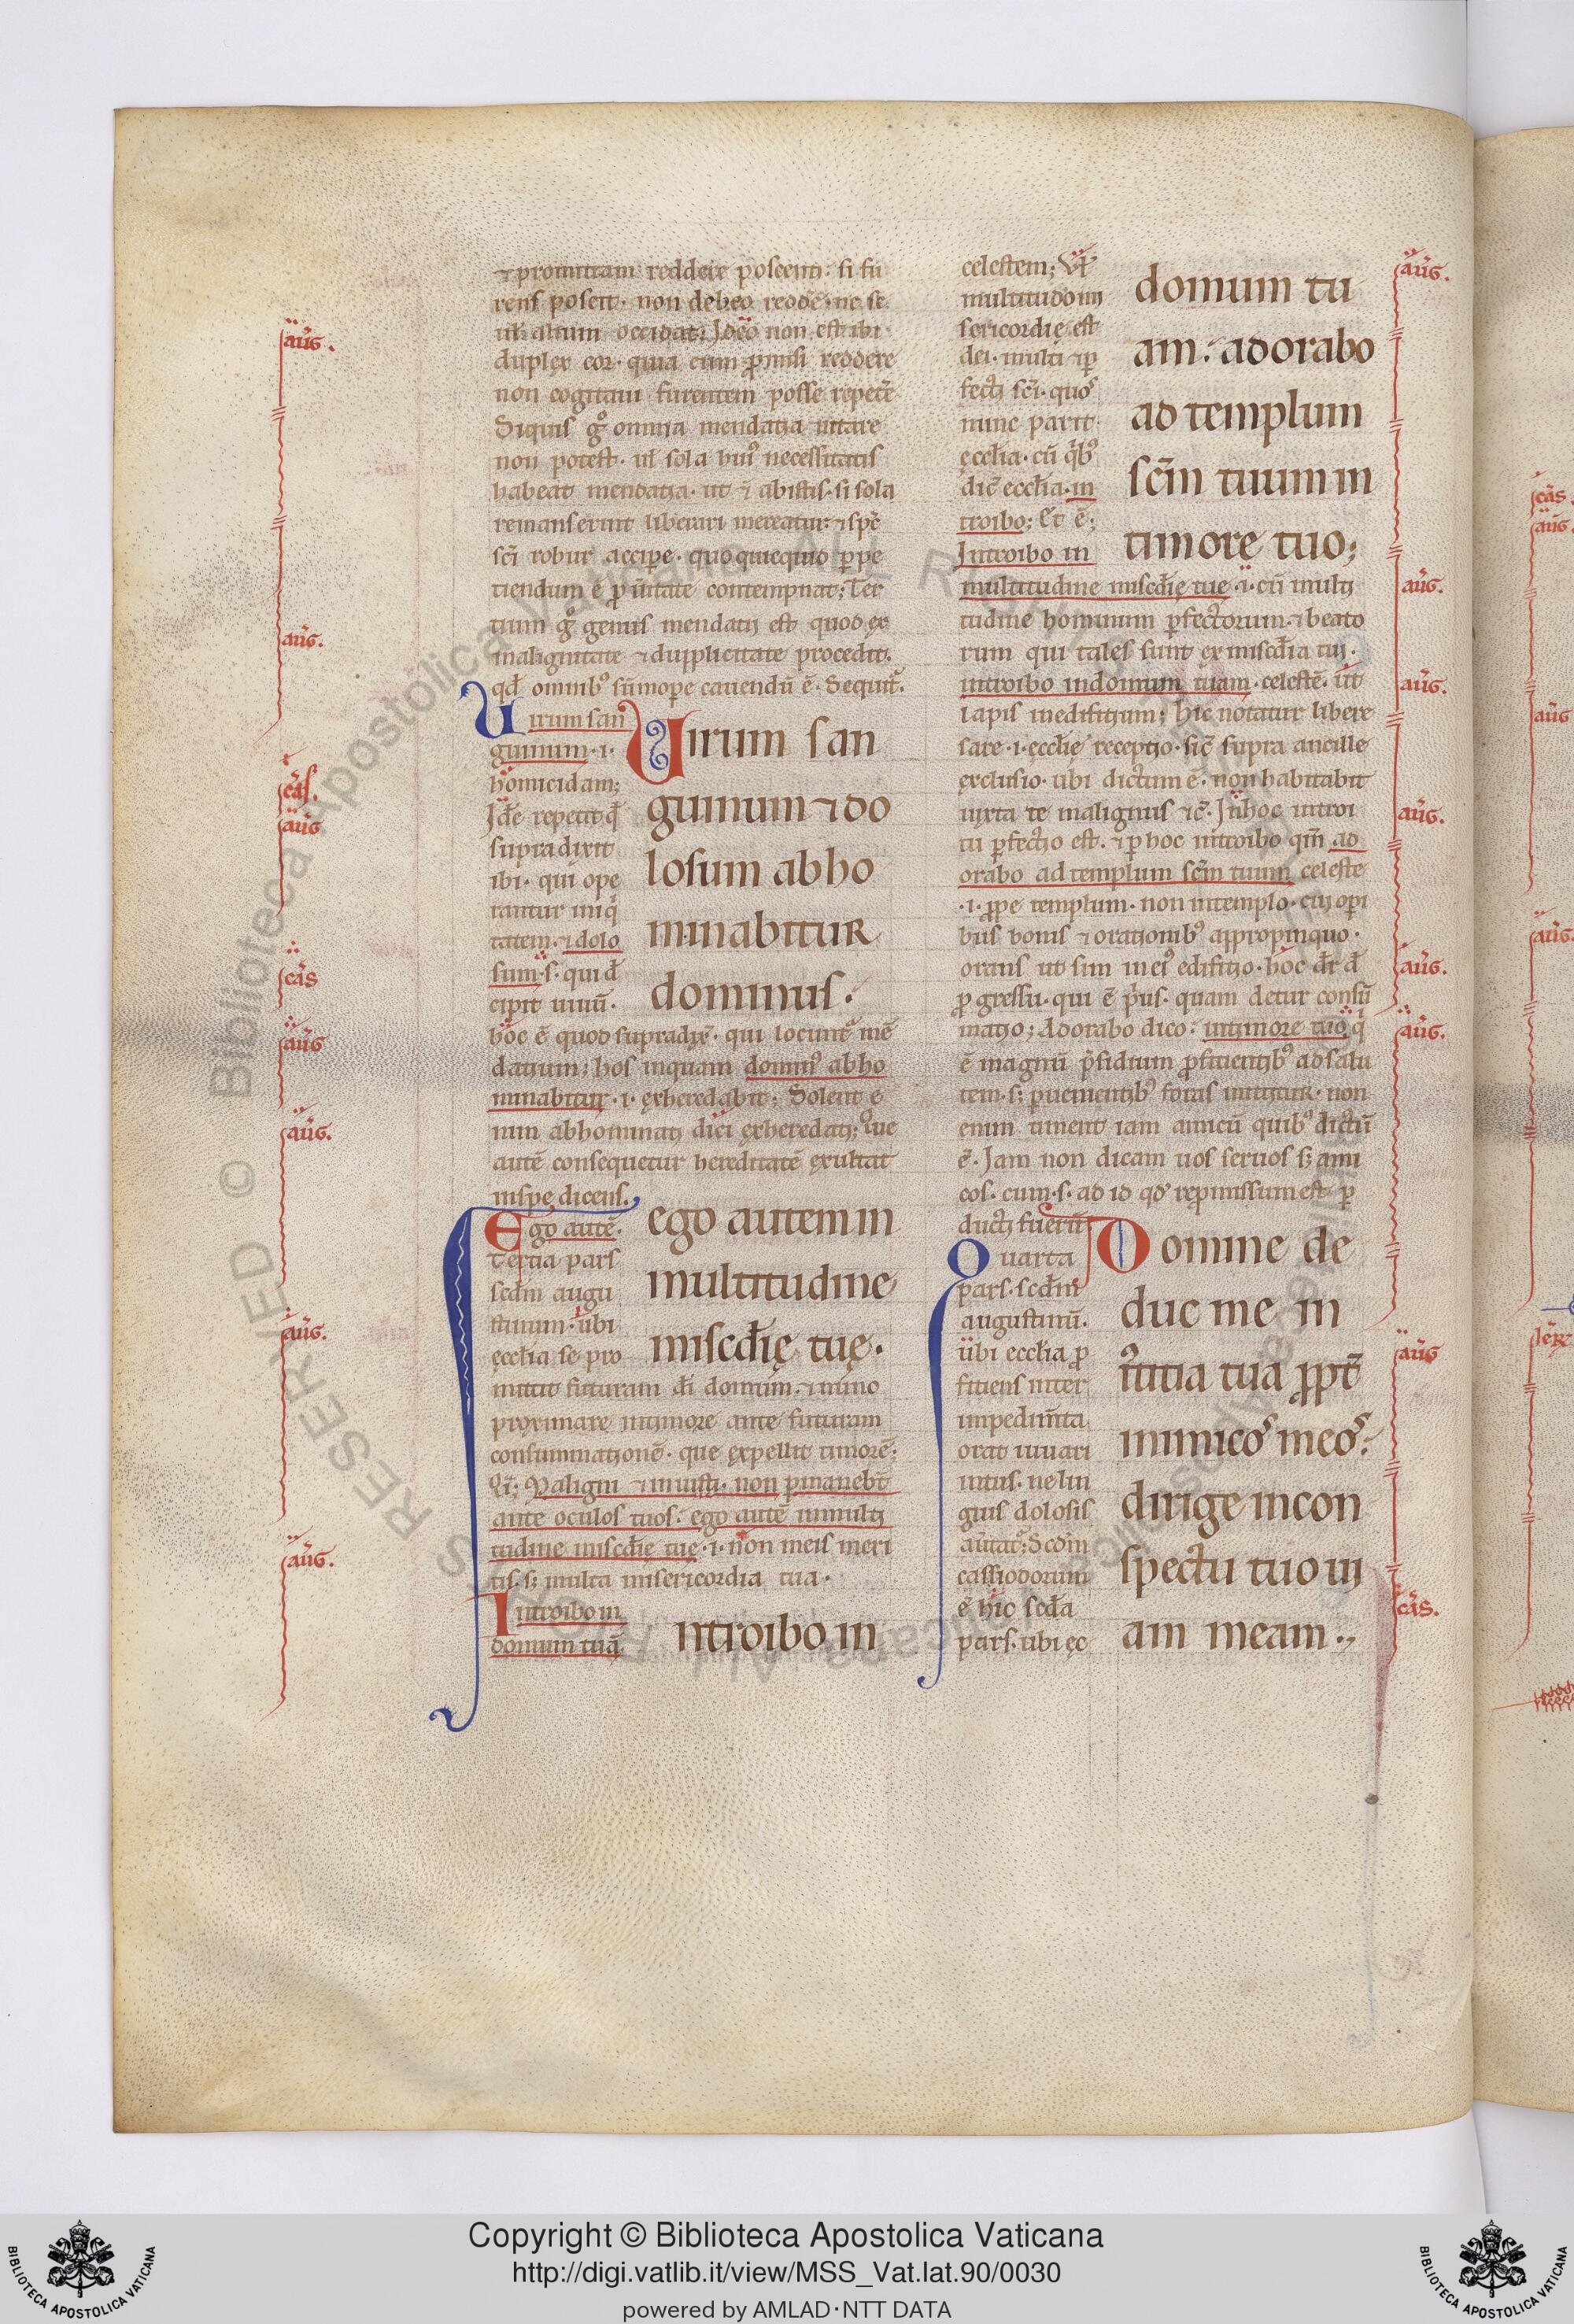 ⁊ promittam reddere poscenti. si fu
rens poscit. non debeo redde͛. ne se
ul̕ alium occidat; Ideo non est ibi
duplex cor. quia cum p̄misi reddere
non cogitaui furentem posse repete͛
Siquis gͦ omnia mendatia uitare
non potest. ul̕ sola huiꝰ necessitatis
habeat mendatia. ut ⁊ ab istis. si sola
remanserint liberari mereatur. ⁊ sp̄c
sc̄i robur accipe. quo quicquid ꝑpe
tiendum ē ꝓ ūitate contempnat; Ter
tium gͦ genus mendatij est quod ex
malignitate ⁊ dupplicitate procedit.
qd̄ omnibꝰ sūmope cauendū ē. Sequit͛.
Uirum san
guinum .i.
homicidam;
Id̄e repetit qd̄
supra dixit
ibi. qui ope
rantur iniq
tatem. ⁊ dolo
sum .s. qui d̄
cipit uiuū.
Uirum san
guinum ⁊ do
losum abho
minabitur
dominus.
hoc ē quod supra dix̄. qui locunt͛ mē
datium; hos inquam domin̄ꝰ abho
minabitur .i. exheredabit; Solent e
nim abhominati dici exheredati; Que
autē consequetur hereditatē exultat
in spe dicens.
Ego autē.
Tertia pars
scd̄m augu
stinum. ubi
ecclia se pro
ego autem in
multitudine
misc̄die tue.
mittit futuram d̄i domum. ⁊ in͞mo
proximare in timore ante futuram
consummationē. que expellit timorē;
Maligni ⁊ iniusti. non ꝑmanebt̄
ante oculos tuos. ego autē in multi
tudine misc̄die tue .i. non meis meri
tis. s; multa misericordia tua.
Introibo in
domum tuā
ntroibo in
celestem; Vl̕
multitudo mi
sericordie est
dei. multi ⁊ ꝑ
fecti sc̄i. quos
nunc parit
ecclia. cū qibꝰ
dic̄ ecclia. in
troibo; Et ē;
Introibo in
domum tu
am. adorabo
ad templum
sc̄m tuum in
timore tuo;
multitudine misc̄die tue .i. cū multi
tudine hominum ꝑfectorum. ⁊ beato
rum qui tales sunt ex misc̄dia tui.
introibo in domum tuam. celestē. ut
lapis in edifitium; Hic notatur libere
sare .i. ecclie receptio. sic̄ supra ancille
exclusio. ubi dictum ē. non habitabit
iuxta te malignus ⁊c̄. In hoc introi
tu ꝑfectio est. ⁊ ꝑ hoc introibo qm̄ ad
orabo ad templum sc̄m tuum celeste
.i. ꝓpe templum. non in templo. cui opi
bus bonis ⁊ orationibꝰ appropinquo.
orans ut sim in eiꝰ edifitio. hoc dr̄ d̄
ꝓgressu. qui ē pͥus. quam detur consū
matio; Adorabo dico. in timore tuo qi
ē magnū p̄sidium ꝓficientibꝰ ad salu
tem. s; ꝑuenientibꝰ foras mittitur. non
enim timent iam amicū quibꝰ dictū
ē. Iam non dicam uos seruos s; ami
cos. cum .s. ad id qd̄ repromissum est ꝑ
ducti fuerūt
Quarta
pars. scd̄m
augustinū.
ubi ecclia ꝓ
fitiens inter
impedim̄ta
orat iuuari
intus. ne lin
guis dolosis
au͛tat͛; Scd̄m
cassiodorum
ē hic scd̄a
pars. ubi ec
Domine de
duc me in
iu͛titia tua ꝓpt͛
inimicos meos.
dirige in con
spectu tuo ui
am meam.
aug̃.
aug̃.
cas̃.
aug̃
cas̃
aug̃
aug̃.
aug̃.
aug̃.
aug̃.
aug̃.
aug̃.
aug̃.
aug̃.
aug̃.
aug̃
cas̃.
cas̃.
aug̃.
aug̃
aug̃.
Copyright © Biblioteca Apostolica Vaticana
http://digi.vatlib.it/view/MSS_Vat.lat.90/0030
powered by AMLAD·NTT DATA
BIBLIOTECA APOSTOLICA VATICANA
BIBLIOTECA APOSTOLICA VATICANA